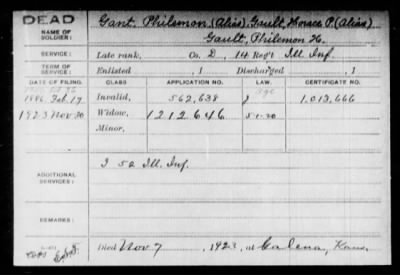 DEAD
NAME OF SOLDIER: Gant, Philemon, (Alias) Gault, Horace P. (Alias)
Gault, Philemon H.
SERVICE: Late rank, Co. D, 14 Reg't Ill. Inf.
TERM OF SERVICE: Enlisted , 1 Discharged , 1
DATE OF FILING. CLASS APPLICATION NO. LAW. CERTIFICATE NO.
1886 Feb. 17 Invalid, 562,638 1,013,666
1923 Nov. 30 Widow, 1212646 5-1-20
Minor,
ADDITIONAL SERVICES: I 50 Ill. Inf.
REMARKS:
Died Nov 7, 1923, at Galena, Kans.